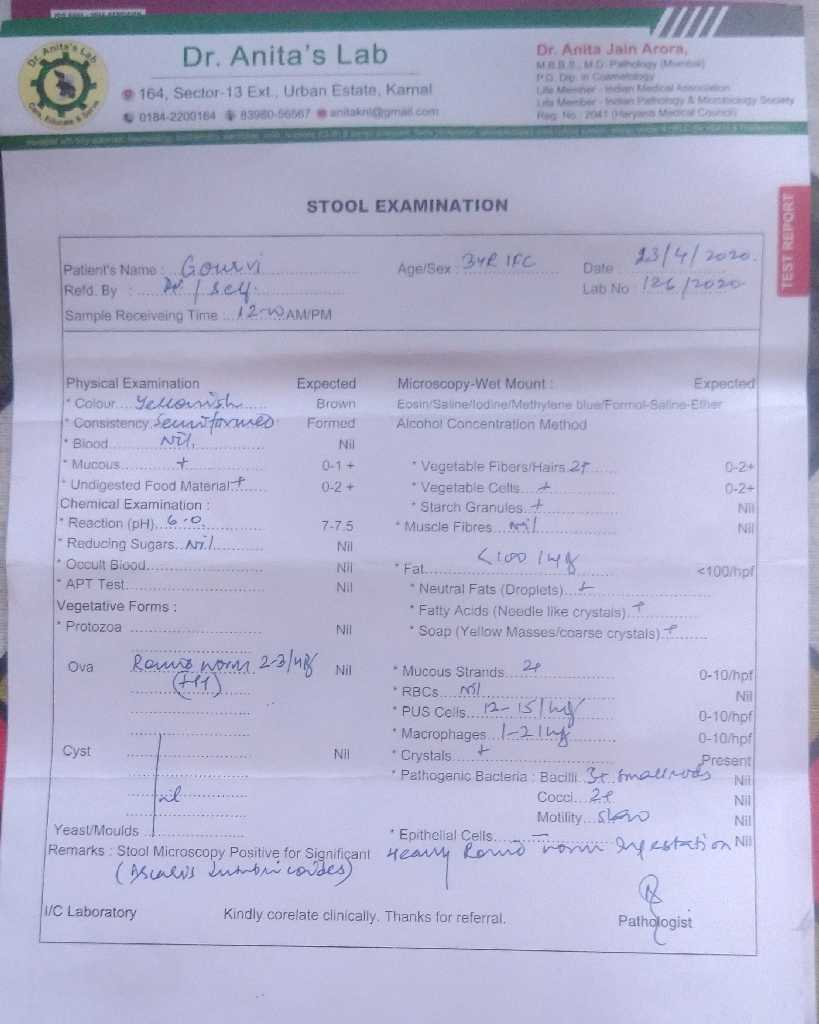 Dr. Anita's Lab
Care, Educate & Serve
Dr. Anita's Lab
164, Sector-13 Ext., Urban Estate, Karnal
0184-2200164 83980-56567 anitaknl@gmail.com
Dr. Anita Jain Arora,
M.B.B.S., M.D. Pathology (Mumbai)
P.G. Dip. in Cosmetology
Life Member - Indian Medical Association
Life Member - Indian Pathology & Microbiology Society
Reg. No. : 2041 (Haryana Medical Council)
TEST REPORT
STOOL EXAMINATION
Patient's Name : Gourvi Age/Sex : 3YR / FC Date 23/4/2020.
Refd. By : Dr / Self. Lab No : 126/2020
Sample Receiveing Time : 12-00 AM/PM
Physical Examination Expected
* Colour Yellowish Brown
* Consistency Semiformed Formed
* Blood Nil. Nil
* Mucous + 0-1 +
* Undigested Food Material + 0-2 +
Chemical Examination :
* Reaction (pH) 6.0. 7-7.5
* Reducing Sugars Nil Nil
* Occult Blood Nil
* APT Test Nil
Vegetative Forms :
* Protozoa Nil
Ova Round worm 2-3/hpf Nil
(+++)
Cyst Nil
nil
Yeast/Moulds
Microscopy-Wet Mount : Expected
Eosin/Saline/Iodine/Methylene blue/Formol-Saline-Ether
Alcohol Concentration Method
* Vegetable Fibers/Hairs 2+ 0-2+
* Vegetable Cells + 0-2+
* Starch Granules + Nil
* Muscle Fibres Nil Nil
* Fat <100/hpf <100/hpf
* Neutral Fats (Droplets) +
* Fatty Acids (Needle like crystals) +
* Soap (Yellow Masses/coarse crystals) +
* Mucous Strands 2+ 0-10/hpf
* RBCs Nil Nil
* PUS Cells 12-15/hpf 0-10/hpf
* Macrophages 1-2/hpf 0-10/hpf
* Crystals + Present
* Pathogenic Bacteria : Bacilli 3+ small rods Nil
Cocci 2+ Nil
Motility slow Nil
* Epithelial Cells – Nil
Remarks : Stool Microscopy Positive for Significant Heavy Round worm Infestation
(Ascaris Lumbricoides)
I/C Laboratory Kindly corelate clinically. Thanks for referral. Pathologist